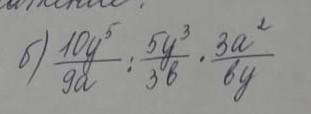 б) 10y⁵/9a : 5y³/3b · 3a²/by